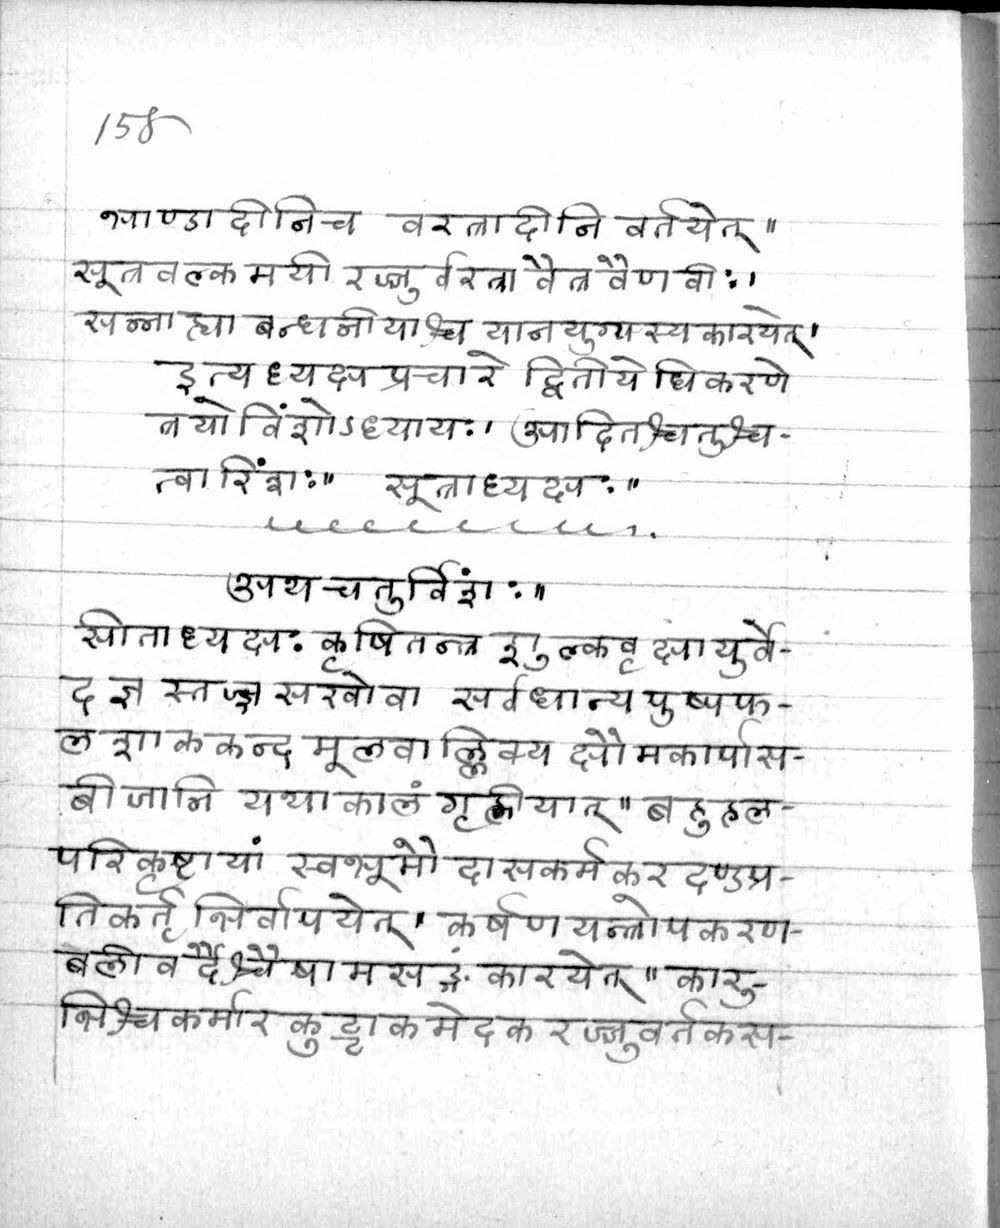 158
भाण्डादीनिच वरत्रादीनि वर्तयेत्॥
सूत्रवल्कमयी रज्जुर्वरत्रा वैत्रवैणवीः।
सन्नाह्या बन्धनीयाश्च यानयुग्यस्य कारयेत्।
इत्यध्यक्षप्रचारे द्वितीयेधिकरणे
त्रयोविंशोऽध्यायः। आदितश्चतुश्च-
त्वारिंशः॥ सूत्राध्यक्षः॥
अथ चतुर्विंशः॥
सीताध्यक्षः कृषितन्त्र शुल्कवृक्षायुर्वे-
दज्ञस्तज्ज्ञसखोवा सर्वधान्यपुष्पफ-
लशाककन्दमूलवाल्लिक्य क्षौमकार्पास-
बीजानि यथाकालं गृह्णीयात्॥ बहुहल-
परिकृष्टायां स्वभूमौ दासकर्मकरदण्डप्र-
तिकर्तृभिर्वापयेत्। कर्षणयन्त्रोपकरण-
बलीवर्दैश्चैषामसङ्गं कारयेत्॥ कारु-
भिश्चकर्मारकुट्टाकमेदकरज्जुवर्तकस-